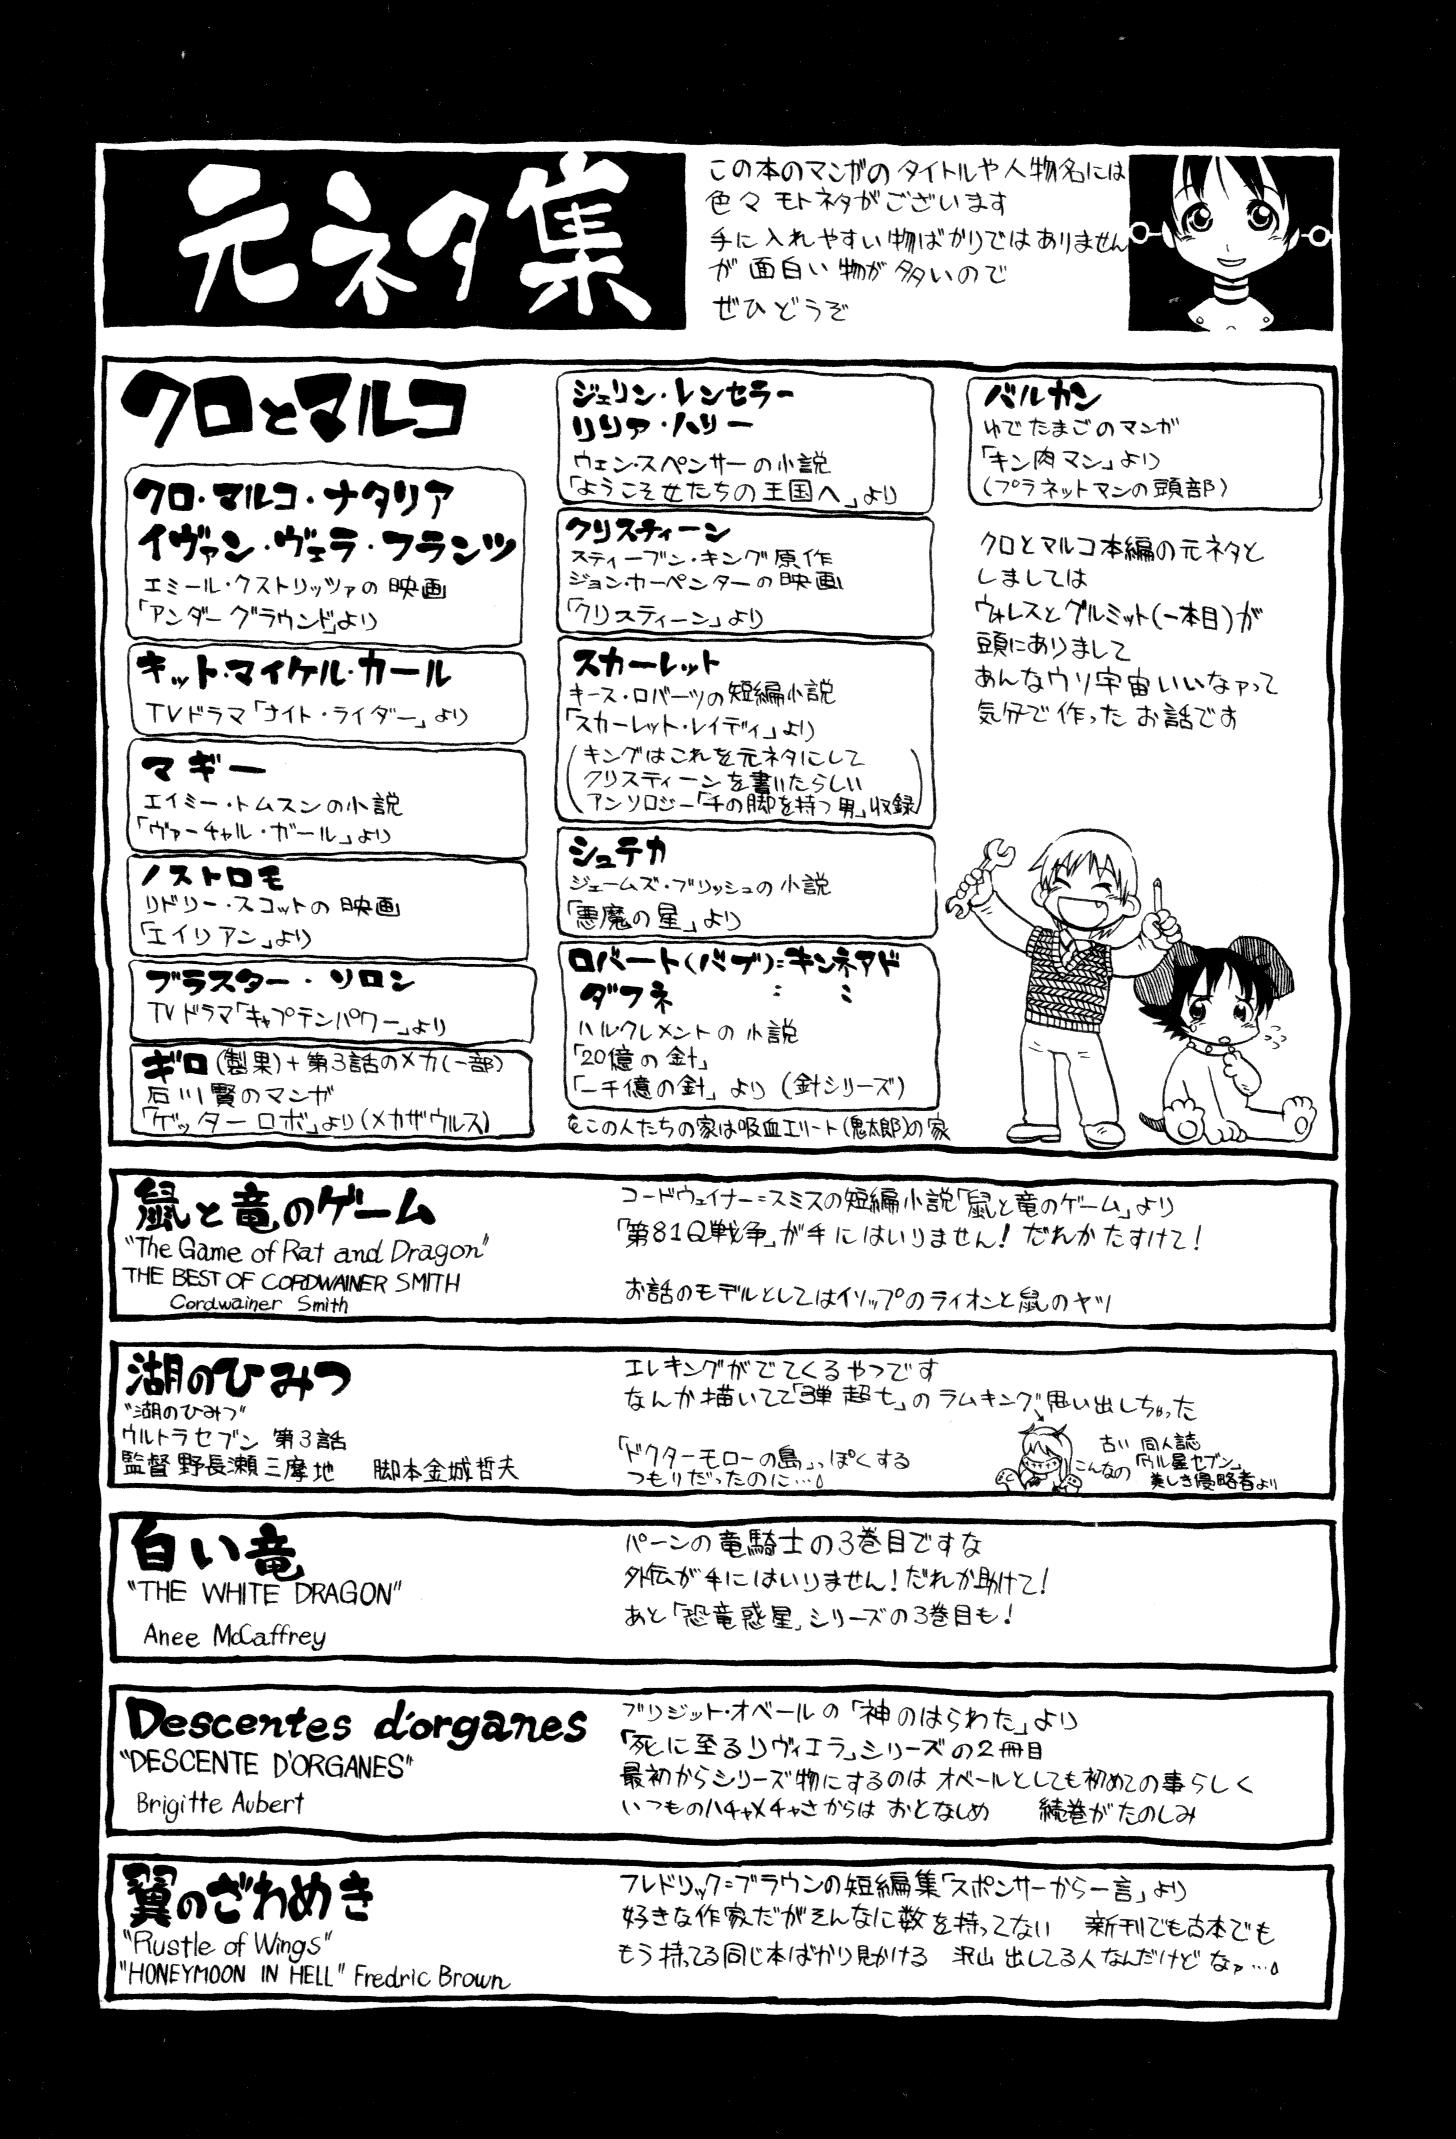 元ネタ集
この本のマンガのタイトルや人物名には
色々モトネタがございます
手に入れやすい物ばかりではありません
が面白い物が多いので
ぜひどうぞ
クロとマルコ
クロ・マルコ・ナタリア
イヴァン・ヴェラ・フランツ
エミール・クストリッツァの映画
「アンダーグラウンド」より
キット・マイケル・カール
TVドラマ「ナイト・ライダー」より
マギー
エイミー・トムスンの小説
「ヴァーチャル・ガール」より
ノストロモ
リドリー・スコットの映画
「エイリアン」より
ブラスター・ソロン
TVドラマ「キャプテンパワー」より
ギロ(製果)+第3話のメカ(一部)
石川賢のマンガ
「ゲッターロボ」より(メカザウルス)
ジェリン・レンセラー
リリア・ハリー
ウェン・スペンサーの小説
「ようこそ女たちの王国へ」より
クリスティーン
スティーブン・キング原作
ジョン・カーペンターの映画
「クリスティーン」より
スカーレット
キース・ロバーツの短編小説
「スカーレット・レイディ」より
(キングはこれを元ネタにして
クリスティーンを書いたらしい
アンソロジー「千の脚を持つ男」収録)
シュテカ
ジェームズ・ブリッシュの小説
「悪魔の星」より
ロバート(バブ)=キンネアド
ダフネ 〃 〃
ハルクレメントの小説
「20億の針」
「一千億の針」より(針シリーズ)
↑この人たちの家は吸血エリート(鬼太郎)の家
バルカン
ゆでたまごのマンガ
「キン肉マン」より
(プラネットマンの頭部)
クロとマルコ本編の元ネタと
しましては
ウォレスとグルミット(一本目)が
頭にありまして
あんなウソ宇宙いいなァって
気分で作ったお話です
鼠と竜のゲーム
"The Game of Rat and Dragon"
THE BEST OF CORDWAINER SMITH
Cordwainer Smith
コードウェイナー=スミスの短編小説「鼠と竜のゲーム」より
「第81Q戦争」が手にはいりません!だれかたすけて!
お話のモデルとしてはイソップのライオンと鼠のヤツ
湖のひみつ
"湖のひみつ"
ウルトラセブン 第3話
監督 野長瀬三摩地 脚本金城哲夫
エレキングがでてくるやつです
なんか描いてて「弾超七」のラムキング思い出しちゃった
「ドクターモローの島」っぽくする
つもりだったのに…
こんなの
古い同人誌
「ウル星セブン」
美しき侵略者より
白い竜
"THE WHITE DRAGON"
Anee McCaffrey
パーンの竜騎士の3巻目ですな
外伝が手にはいりません!だれか助けて!
あと「恐竜惑星」シリーズの3巻目も!
Descentes d'organes
"DESCENTE D'ORGANES"
Brigitte Aubert
ブリジット・オベールの「神のはらわた」より
「死に至るリヴィエラ」シリーズの2冊目
最初からシリーズ物にするのはオベールとしても初めての事らしく
いつものハチャメチャさからはおとなしめ 続巻がたのしみ
翼のざわめき
"Rustle of Wings"
"HONEYMOON IN HELL" Fredric Brown
フレドリック=ブラウンの短編集「スポンサーから一言」より
好きな作家だがそんなに数を持ってない 新刊でも古本でも
もう持ってる同じ本ばかり見かける 沢山出してる人なんだけどなァ…